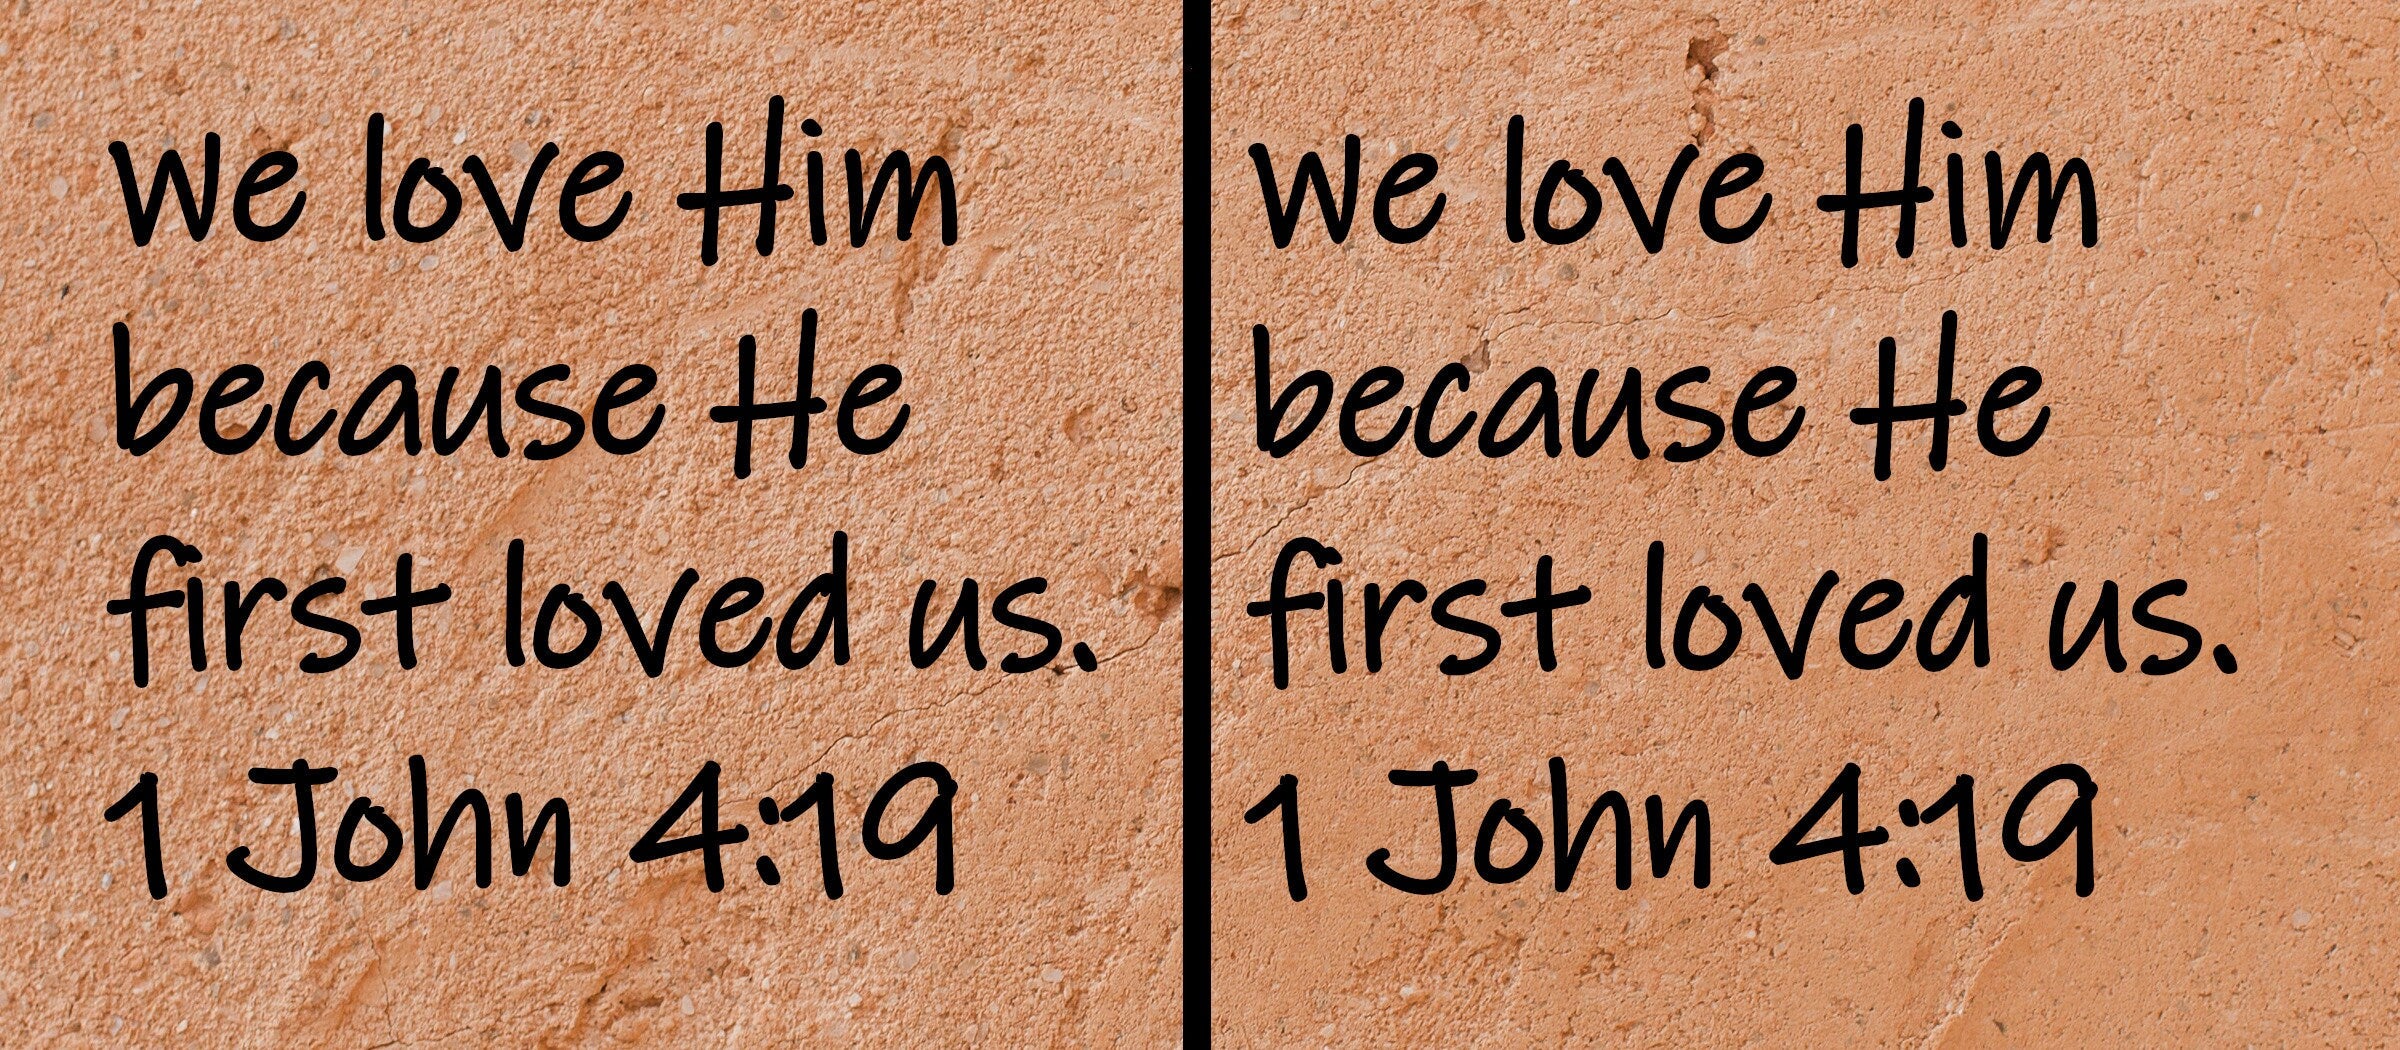 We love Him
because He
first loved us.
1 John 4:19
We love Him
because He
first loved us.
1 John 4:19